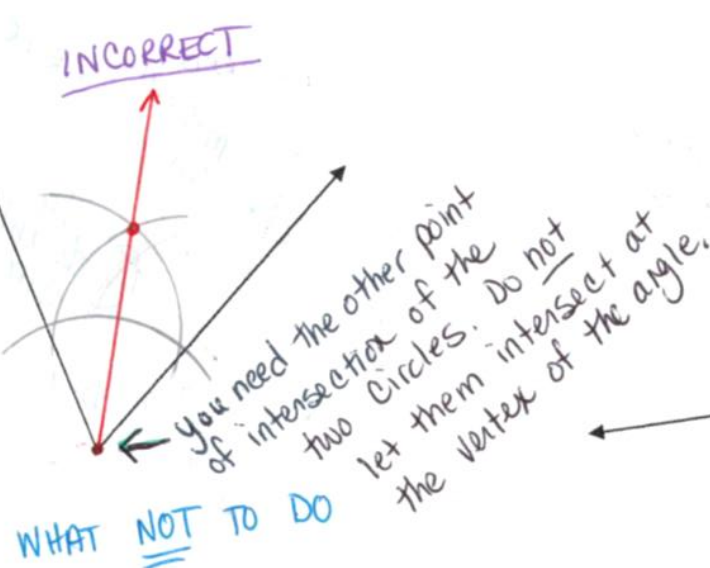 INCORRECT
you need the other point
of intersection of the
two circles. Do not
let them intersect at
the vertex of the angle.
WHAT NOT TO DO